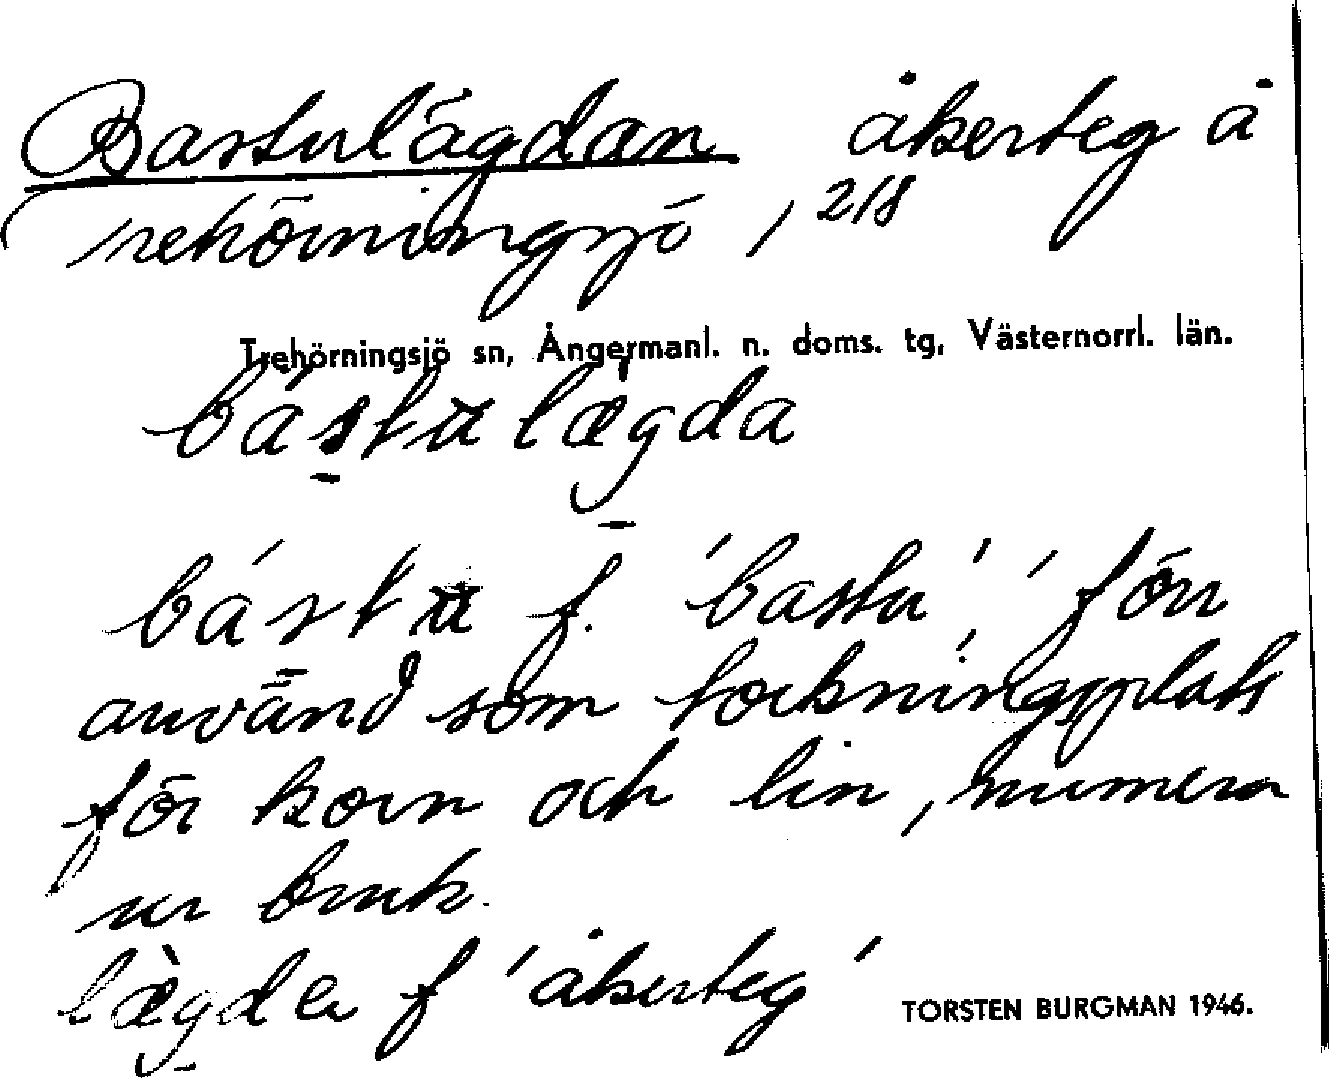 Bastulägdan åkerteg å
Trehörningsjö, 2/8
Trehörningsjö sn, Ångermanl. n. doms. tg, Västernorrl. län.
bástu lægda
bástu f. 'bastu', förr
använd som torkningsplats
för korn och lin, numera
ur bruk.
lægde f 'åkerteg'
TORSTEN BURGMAN 1946.